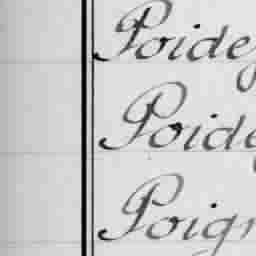 Poidey
Poide
Poign